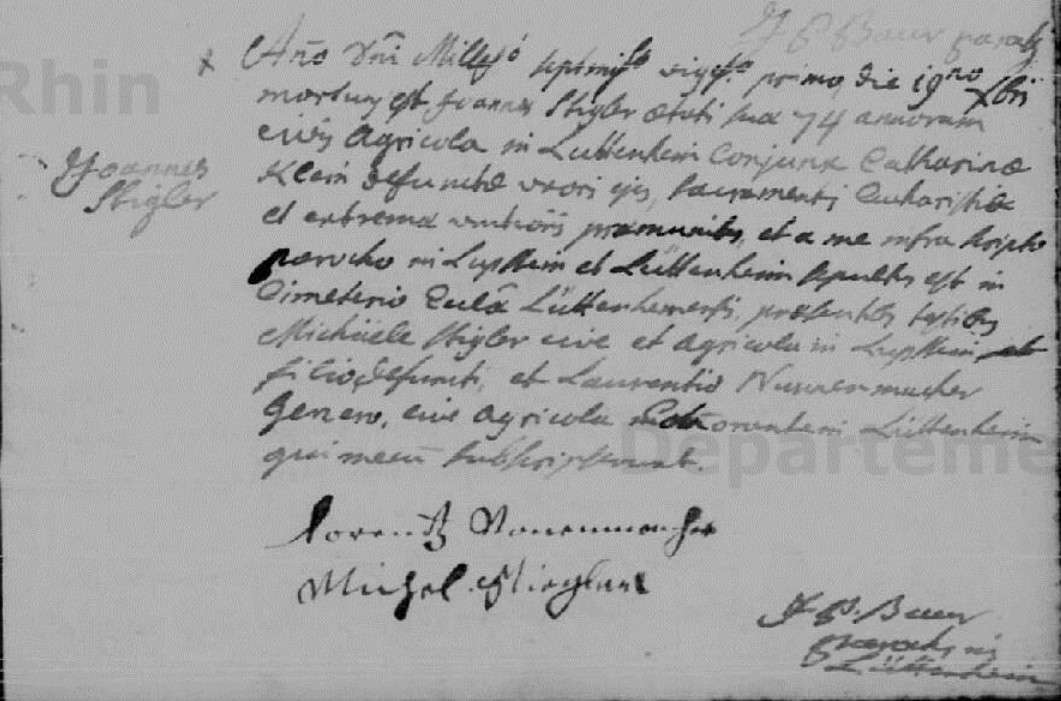 J P Baur paroch
Año Dñi Millesō septingēo vigesō primo die 19no Xbri
mortuus est Joannes Stigler ætatis suæ 74 annorum
civis Agricola in Lüttenheim Conjunx Catharinæ
Joannes
Stigler
Klein defunctæ uxoris ejus, Sacramentis Eucharistiæ
et extremæ unctionis præmunitus, et a me infra scripto
parocho in Lupstein et Lüttenheim sepultus est in
Cimeterio Lüttenhemensis, præsentibus testibus
Michäele Stigler cive et agricola in Lupstein et
filio defuncti, et Laurentio Nunnenmacher
Genero, cive agricola Lüttenheim
qui mecum subscripserunt.
Lorentz Nonenmacher
Michel
J P. Baur
parochus in
Lüttenheim
Rhin
Departeme